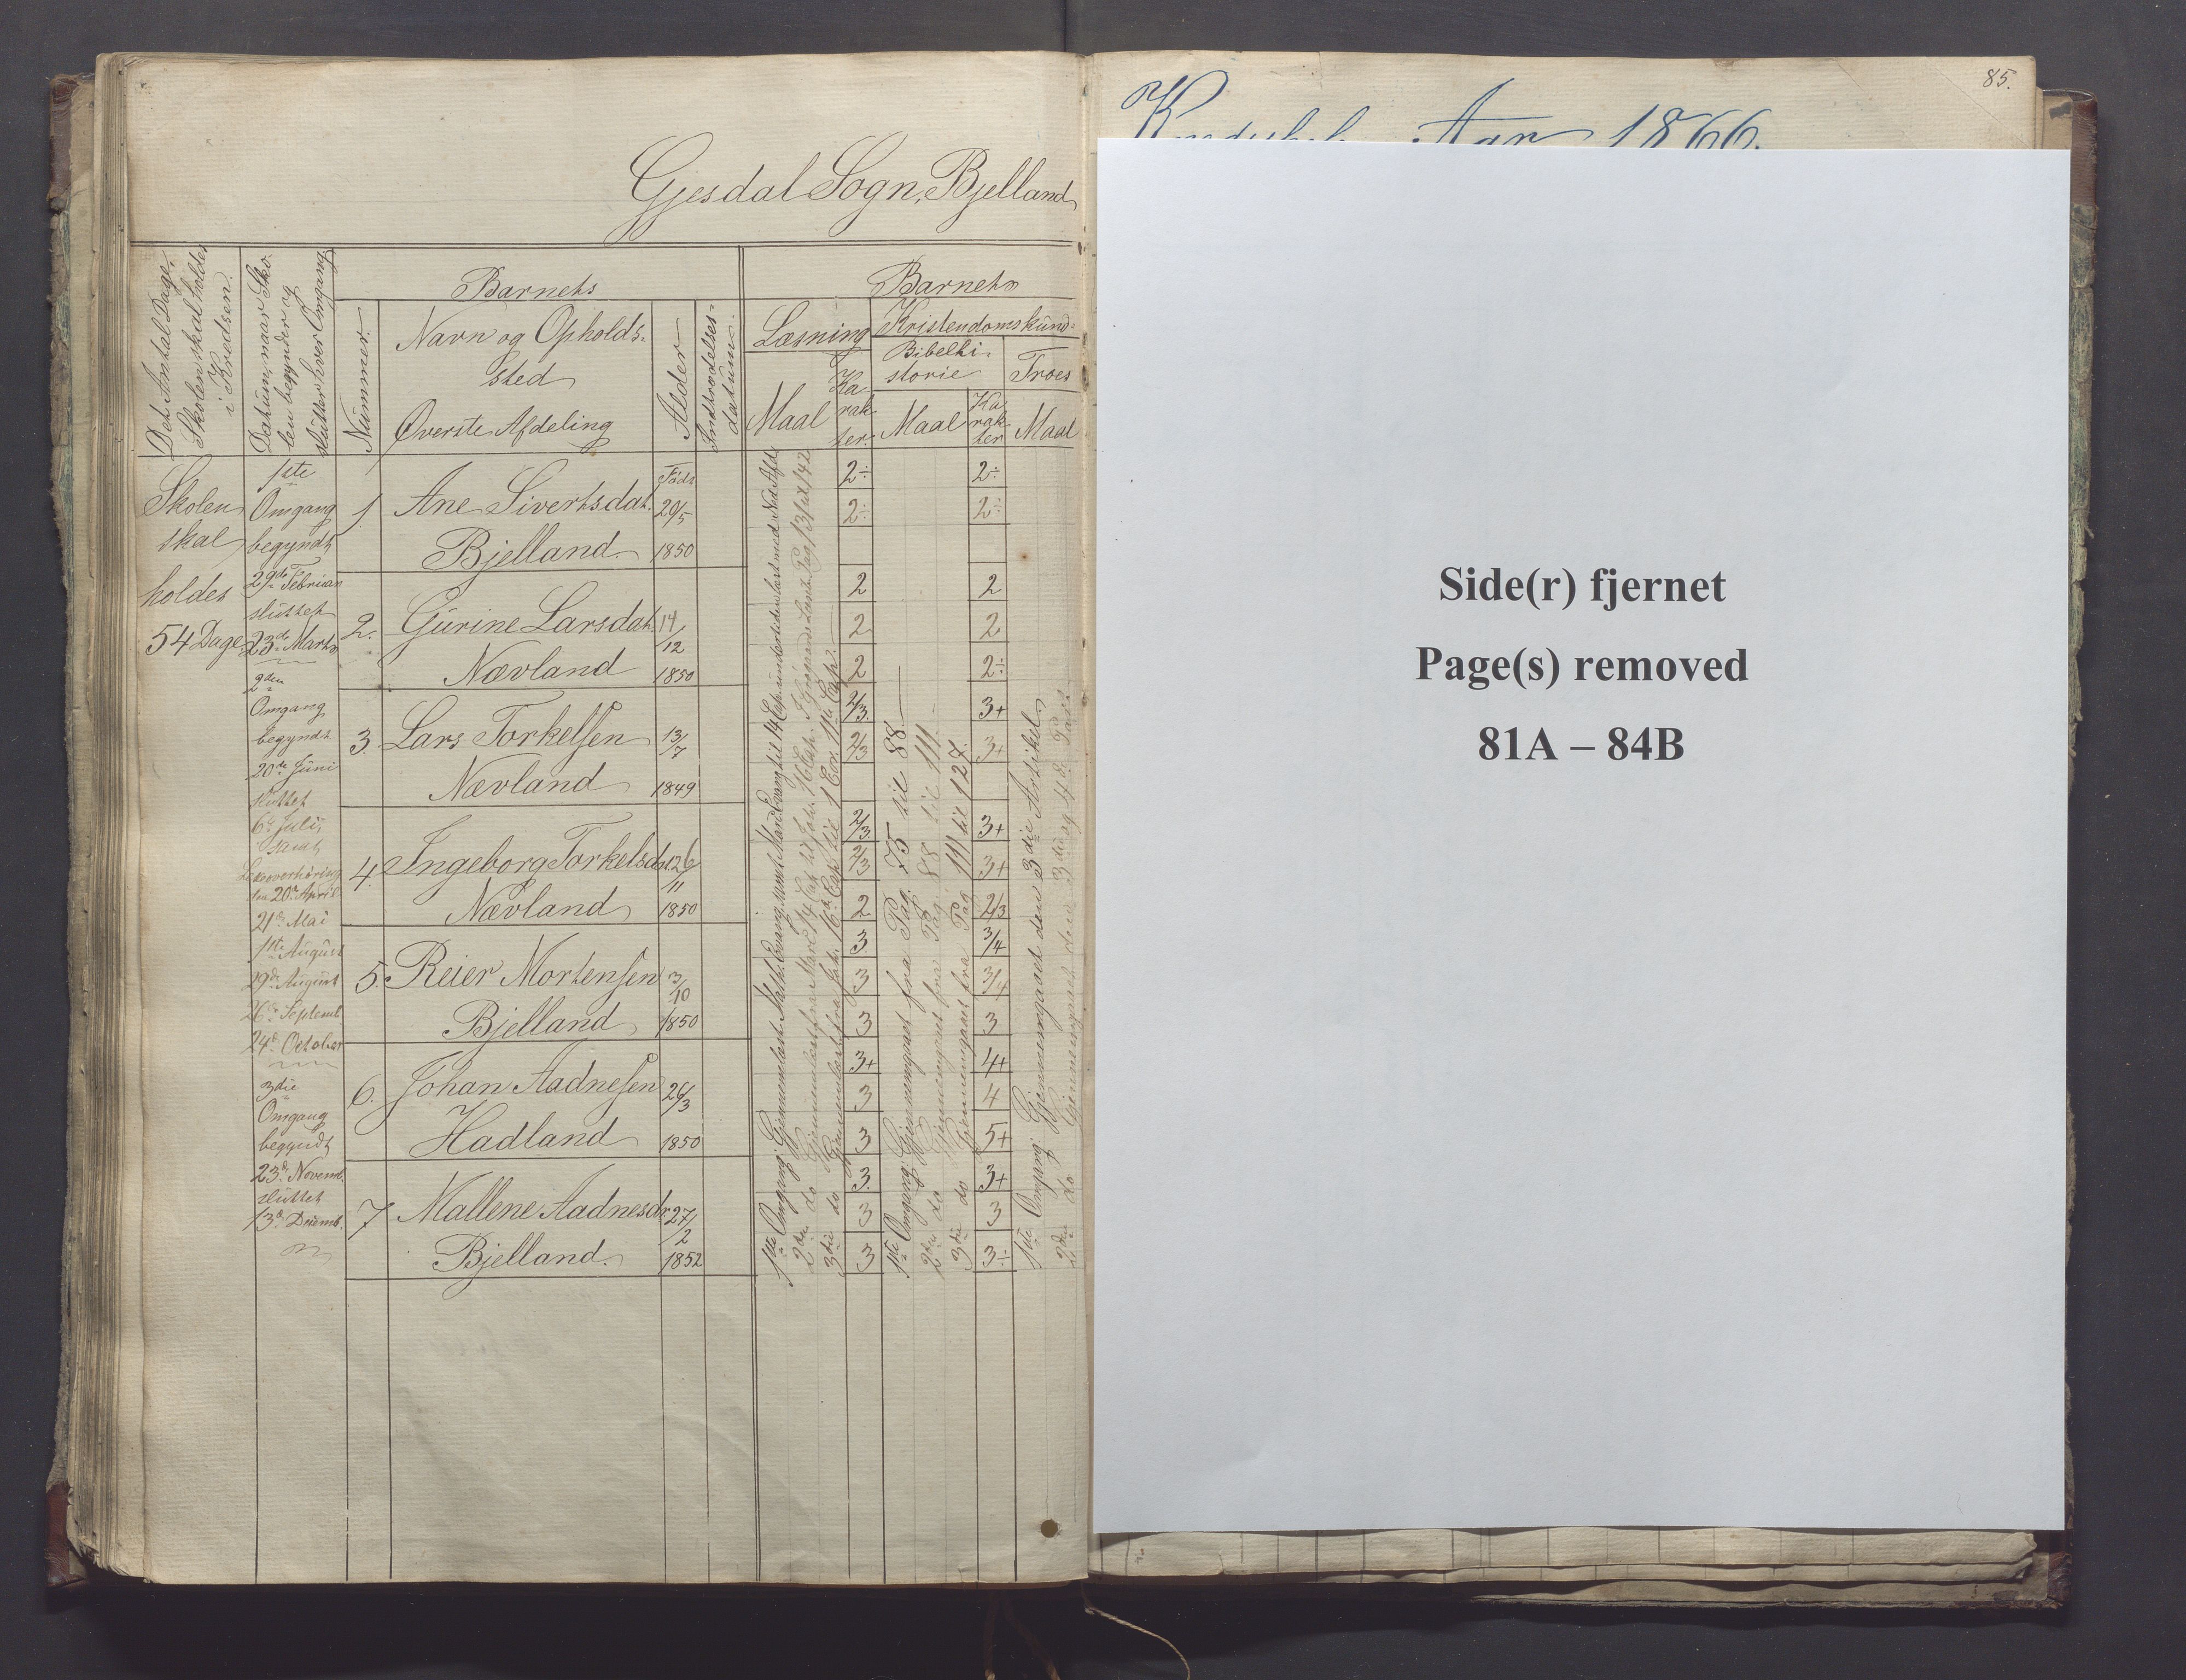 Gjesdal Sogn, Bjelland
Det Antal Dage,
Skolen skal holdes
i Kredsen.
Datum, naar Sko-
len begynder og
slutter hver Omgang
Nummer.
Barnets
Navn og Opholds-
sted
Øverste Afdeling
Alder
Indtrædelses-
datum.
Barnets
Læsning
Maal
Ka-
rak-
ter.
Kristendomskund-
Bibelhi-
storie
Maal
Ka
rak
ter
Troes
Maal
Skolen
skal
holdes
54 Dage.
1ste
Omgang
begyndt
29de Februar
sluttet
23de Marts
2den
Omgang
begyndt
20de Juni
sluttet
6te Juli,
samt
Læseoverhøring
den 20de April
21de Mai
1ste August
29de August
26de Septemb.
24de October
3die
Omgang
begyndt
23de Novemb.
sluttet
13de Decemb.
1
Ane Sivertsdat.
Bjelland.
Født
20/5
1850
2.
Gurine Larsdat.
Nævland
14/12
1850
3.
Lars Torkelsen
Nævland
13/7
1849
4.
Ingeborg Torkelsdat.
Nævland
26/11
1850
5.
Reier Mortensen
Bjelland
3/10
1850
6.
Johan Aadnesen
Hadland
26/3
1850
7
Mallene Aadnesdr.
Bjelland.
27/2
1852
1ste Omgang: Gjennemlæst Matth. Evang. samt Mark. Evang. til 14 Cap.
2den do Gjennemlæst fra Mark. 14 Cap. til Joh. 16 Cap.
3die do Gjennemlæst fra Joh. 16de Cap. til 1 Cor. 1ste Cap.
2÷
2÷
2
2
2
2/3.
2/3
2/3.
2/3
2
3.
3
3
3+
3
3
3.
3
3
1ste Omgang: Gjennemgaaet fra Pag. 75 til 88
2den do Gjennemgaaet fra Pag. 88 til 111
3die do Gjennemgaaet fra Pag 111 til 127.
2÷
2÷
2
2
2÷
3+
3+
3+
3+
2/3
3/4
3/4
3
4+
4
5+
3+
3
3÷
1ste Omgang: Gjennemgaaet den 3die Artikel
2den do Gjennemgaaet den 3die og 4de Part
85.
Aar 1866.
Side(r) fjernet
Page(s) removed
81A – 84B